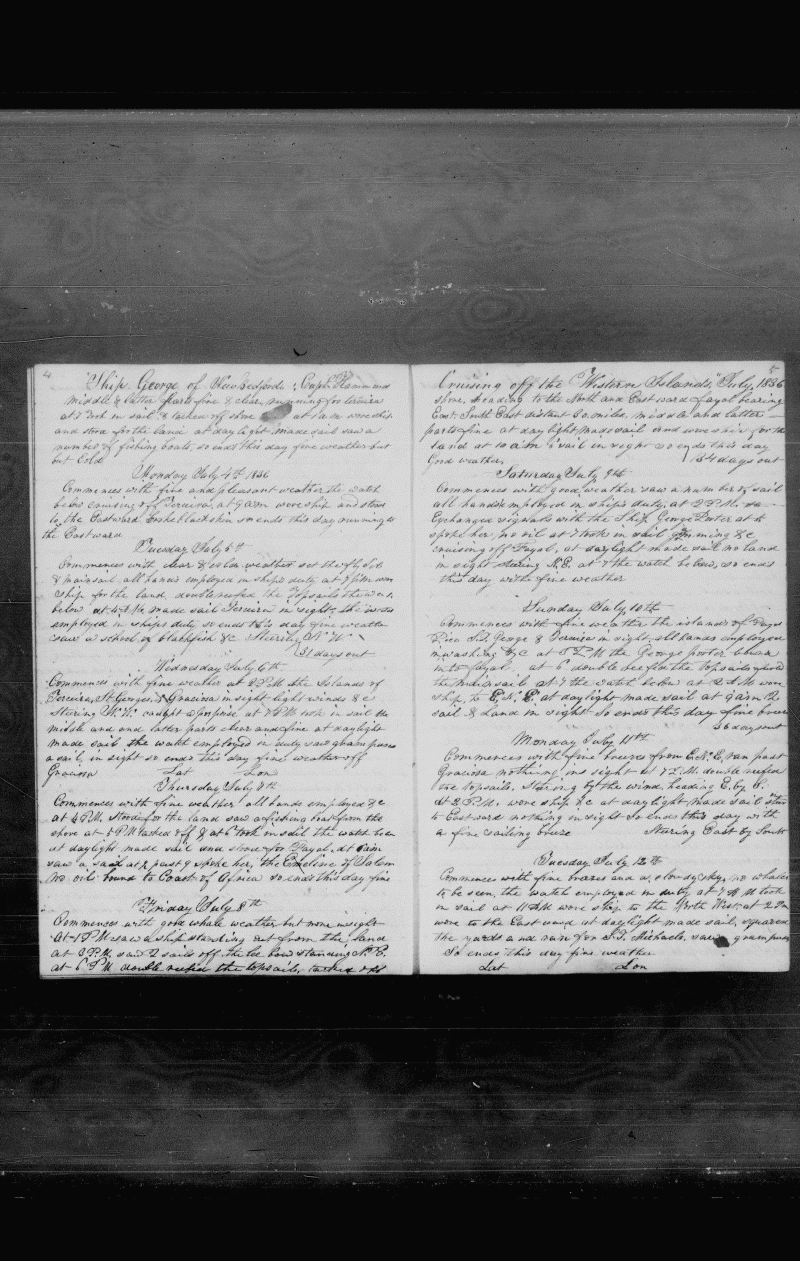 4
Ship George of New Bedford, Capt. Hammond
middle & latter parts fine & clear, running for Terceira
at 7 took in sail & tacked off shore at 1 a.m. wore ship
and stood for the land at daylight made sail saw a
number of fishing boats, so ends this day fine weather but
but Cold
Monday July 4th 1836
Commences with fine and pleasant weather the watch
below cruising off Terceira, at 9 a.m. wore ship and stood
to the Eastward blackskin so ends this day running to
the Eastward
Tuesday July 5th
Commences with clear & cold weather set the fly jib
& mainsail all hands employed in ships duty at 7 P.M. wore
ship for the land, double reefed the Topsails the watch
below at 4 A.M. made sail Terceira in sight, the
employed in ships duty so ends this day fine weather
saw a school of blackfish &c Steering N. W.
31 days out
Wednesday July 6th
Commences with fine weather at 2 P.M. the Islands of
Terceira, St. Georges, & Graciosa in sight light winds &c
Steering W. N. caught a Porpoise at 7 P.M. took in sail the
middle and and latter parts clear and fine at daylight
made sail the watch employed on duty saw grampuses
a sail in sight so ends this day fine weather off
Graciosa Lat Lon
Thursday July 7th
Commences with fine weather all hands employed &c
at 4 P.M. stood for the land saw a fishing boat from the
shore at 5 P.M. tacked off & at 6 took in sail the watch below
at daylight made sail and stood for Fayal, at 6 a.m.
saw a sail at ½ past 9 spoke her, the Emeline of Salem
no oil bound to Coast of Africa so ends this day fine
Friday July 8th
Commences with good whale weather but none in sight
At 1 P.M. saw a ship standing out from the land
at 3 P.M. saw 2 sails off the lee bow standing N. E.
at 6 P.M. double reefed the topsails, tacked off
5
Cruising off the "Western Islands," July, 1836
shore, heading to the North and Eastward Fayal bearing
East South East distant 60 miles, middle and latter
parts fine at daylight made sail and wore ship for the
land at 10 a.m. 1 sail in sight so ends this day
Good weather, 34 days out
Saturday July 9th
Commences with good weather saw a number of sail
all hands employed in ships duty, at 2 P.M.
Exchanged signals with the Ship George Porter at 4
spoke her, no oil at 7 took in sail &c
cruising off Fayal, at daylight made sail no land
in sight steering N.E. at 7 the watch below, so ends
this day with fine weather
Sunday July, 10th
Commences with fine weather the islands of Fayal
Pico St. George & Terceira in sight, all hands employed
in washing &c at 5 P.M. the George porter
in to Fayal. at 6 double reefed the topsails furled
the Mainsail at 7 the watch below at 2 A.M. wore
ship, to E. N. E. at daylight made sail at 9 a.m. 2
sail & Land in sight So ends this day fine breeze
36 days out
Monday July 11th
Commences with fine breezes from E.N.E, ran past
Graciosa nothing in sight at 7 P.M. double reefed
the topsails. Steering by the wind, heading E. by S.
At 2 P.M. wore ship &c at daylight made sail
to Eastward nothing in sight So ends this day with
a fine sailing breeze Steering East by South
Tuesday July 12th
Commences with fine breezes and a cloudy sky, no whales
to be seen, the watch employed on duty at 7 P.M. took
in sail at 11 P.M. wore ship to the North West, at 2 A.M.
wore to the Eastward at daylight made sail, squared
the yards and run for St. Michaels, saw grampuses
So ends this day fine weather
Lat Lon